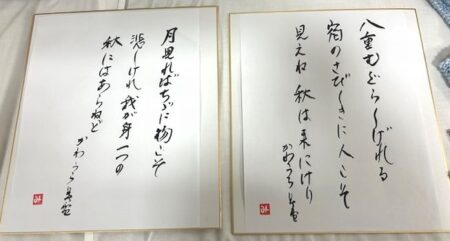 八重むぐらしげれる
宿のさびしきに人こそ
見えね 秋は来にけり
かわうち
月見ればちゞに物こそ
悲しけれ 我が身一つの
秋にはあらねど
かわうち